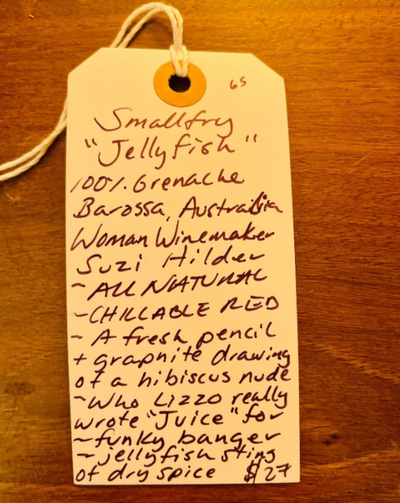 65
Smallfry
"Jellyfish"
100% Grenache
Barossa, Australia
Woman Winemaker
Suzi Hilder
- ALL NATURAL
- CHILLABLE RED
- A fresh pencil
+ graphite drawing
of a hibiscus nude
- Who Lizzo really
wrote "Juice" for
- funky banger
- jellyfish sting
of dry spice $27